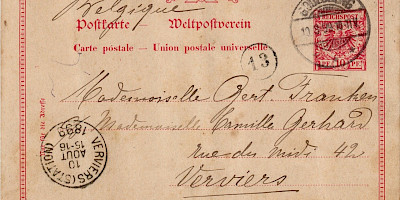 Belgique
Postkarte — Weltpostverein
Carte postale — Union postale universelle
REICHSPOST
10 PF
13
Mademoiselle Bert. Franken
Mademoiselle Camille Gerhard
rue du midi 42
Verviers
VERVIERS (STATION)
10
AOUT
15-16
1899